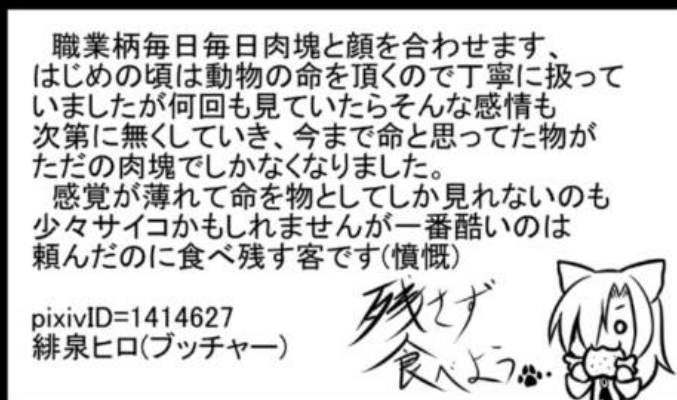 職業柄毎日毎日肉塊と顔を合わせます、
はじめの頃は動物の命を頂くので丁寧に扱って
いましたが何回も見ていたらそんな感情も
次第に無くしていき、今まで命と思ってた物が
ただの肉塊でしかなくなりました。
感覚が薄れて命を物としてしか見れないのも
少々サイコかもしれませんが一番酷いのは
頼んだのに食べ残す客です(憤慨)
pixivID=1414627
緋泉ヒロ(ブッチャー)
残さず
食べよう